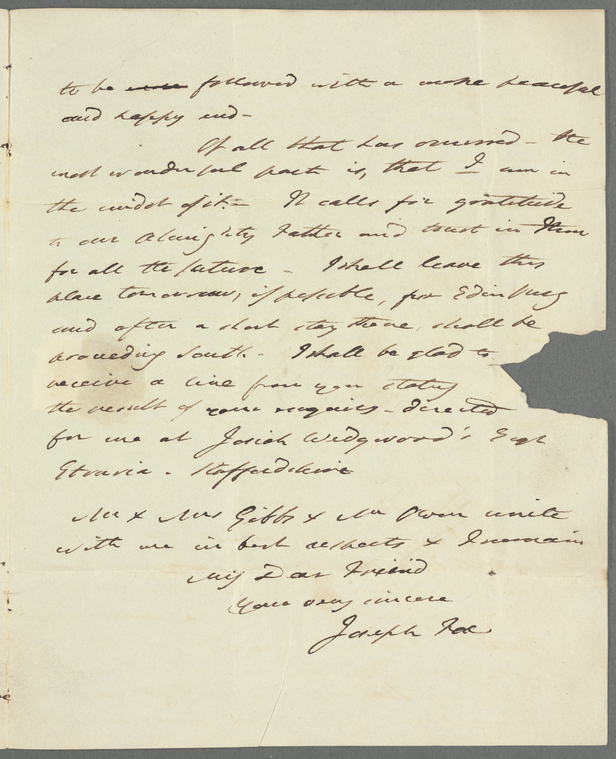 to be followed with a more peaceful
and happy end -
Of all that has occurred - the
most wonderful part is, that I am in
the midst of it: - It calls for gratitude
to our Almighty Father and trust in Him
for all the future - I shall leave this
place tomorrow, if possible, for Edinburg
and after a short stay there, shall be
proceeding South - I shall be glad to
receive a line from you stating
the result of your enquiries - directed
for me at Josiah Wedgwood's Esqr
Etruria - Staffordshire
Mr & Mrs Gibbs & Mr Owen unite
with me in best respects & I remain
My Dear Friend
Your very sincere
Joseph Fox